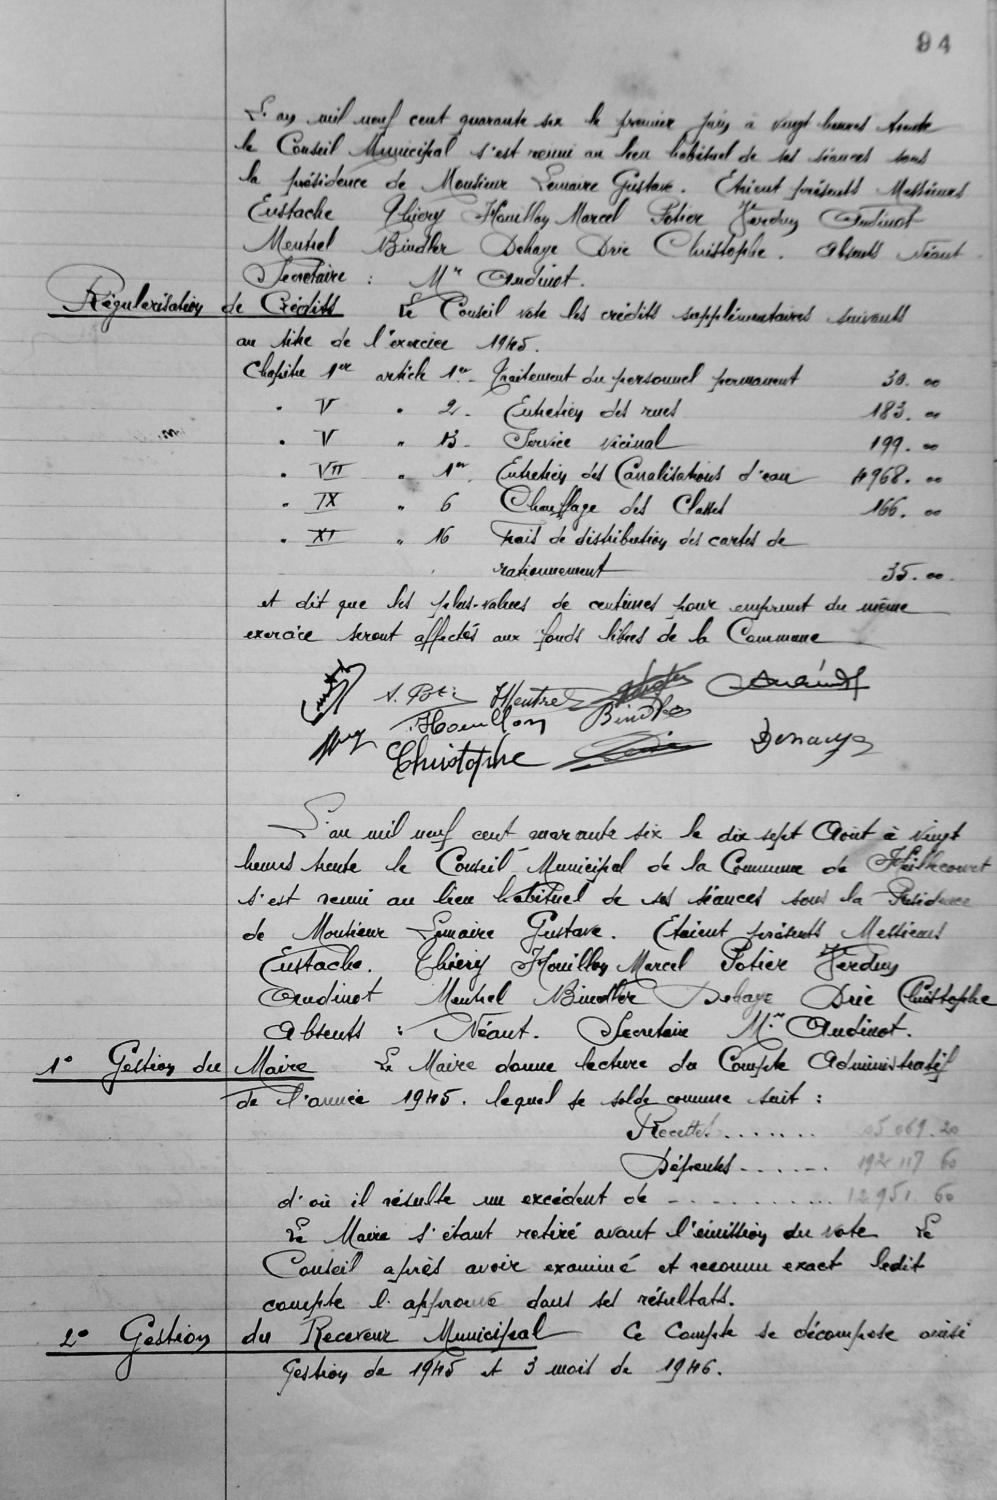 94
L'an mil neuf cent quarante six le premier juin à vingt heures trente
le Conseil Municipal s'est reuni au lieu habituel de ses séances sous
la présidence de Monsieur Lemaire Gustave. Etaient présents Messieurs
Eustache Thiery Houillon Marcel Potier Verdun Oudinot
Mentrel Bindler Dehaye Drie Christophe. Absents Néant.
Secretaire : Mr Oudinot.
Régularisation de Crédits Le Conseil vote les crédits supplémentaires suivants
au titre de l'exercice 1945.
Chapitre 1er article 1er- Traitement du personnel permanent 30.00
" V " 2- Entretien des rues 183.00
" V " 13- Service vicinal 199.00
" VII " 1er Entretien des Canalisations d'eau 4968.00
" IX " 6 Chauffage des Classes 166.00
" XI " 16 Frais de distribution des cartes de
rationnement 35.00.
et dit que les plus-values de centimes pour emprunt du même
exercice seront affectés aux fonds libres de la Commune
Mentrel
Houillon Bindler
Christophe
L'an mil neuf cent quarante six le dix sept Août à vingt
heures trente le Conseil Municipal de la Commune de
s'est reuni au lieu habituel de ses séances sous la Présidence
de Monsieur Lemaire Gustave. Etaient présents Messieurs
Eustache. Thiery Houillon Marcel Potier Verdun
Oudinot Mentrel Bindler Dehaye Drie Christophe
Absents : Néant. Secretaire Mr Oudinot.
1° Gestion du Maire Le Maire donne lecture du Compte Administratif
de l'année 1945. lequel se solde comme suit :
Recettes ....... 5 069.20
Dépenses ....... 192 117 60
d'où il résulte un excédent de ........... 12951.60
Le Maire s'étant retiré avant l'émission du vote Le
Conseil après avoir examiné et reconnu exact ledit
compte l'approuve dans ses résultats.
2° Gestion du Receveur Municipal Ce Compte se décompose ainsi
Gestion de 1945 et 3 mois de 1946.